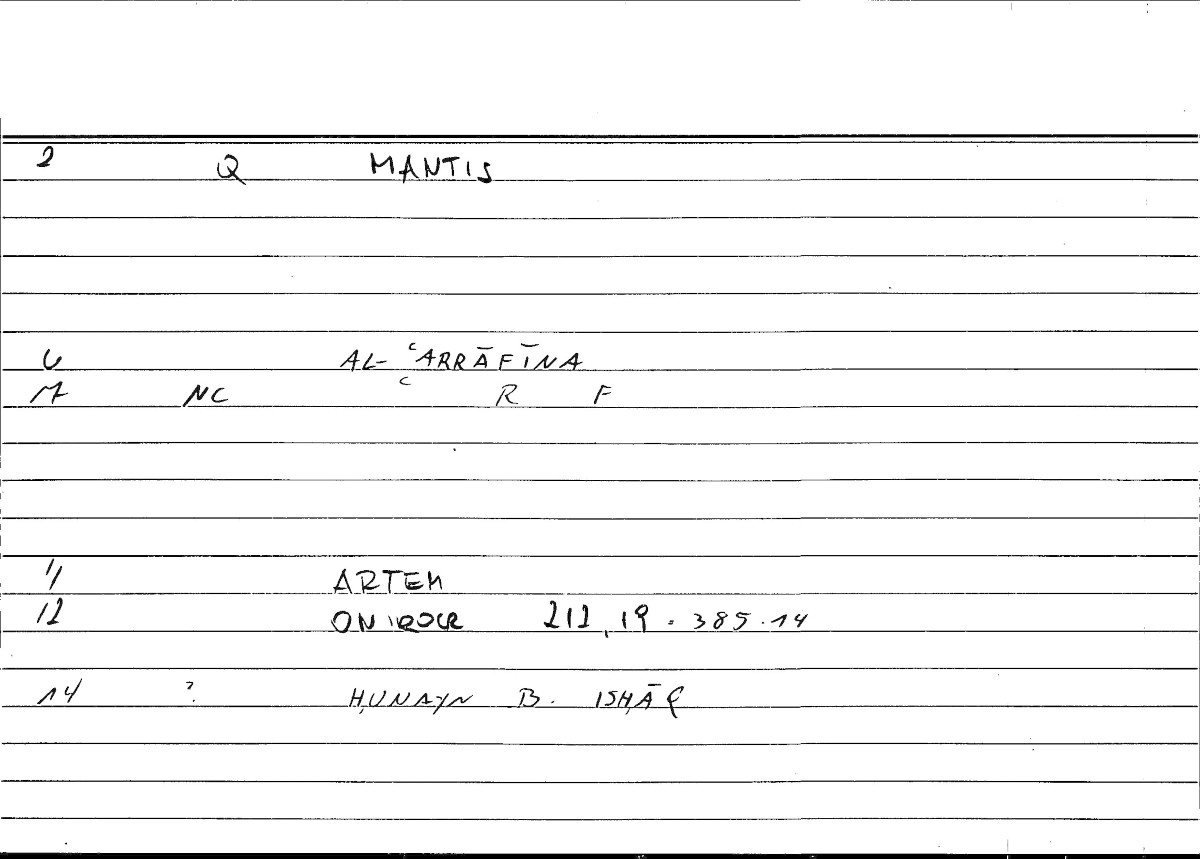 2 Q MANTIS
6 AL-ʿARRĀFĪNA
7 NC ʿ R F
11 ARTEM
12 ONIROCR 212,19 = 385.14
14 ? ḤUNAYN B. ISḤĀQ